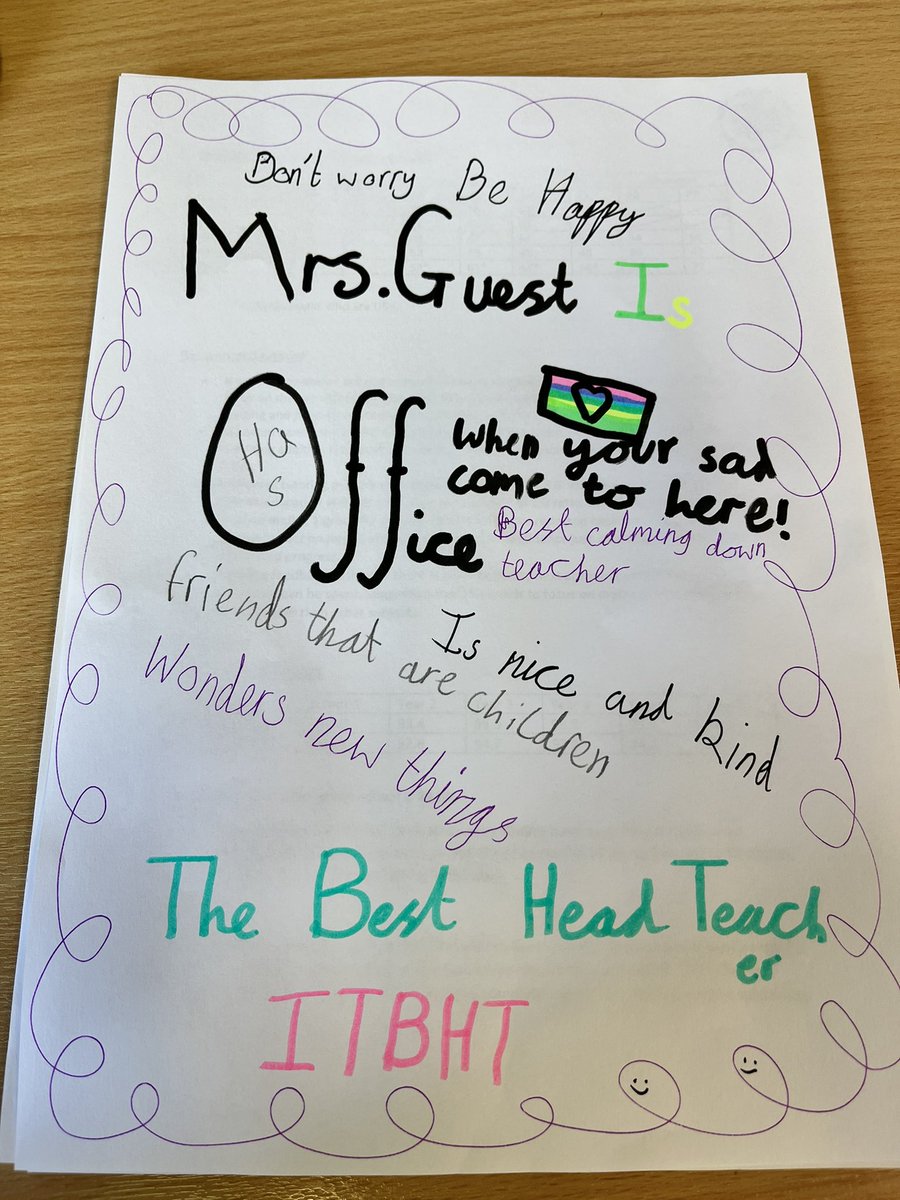 Don't worry Be Happy
Mrs. Guest Is
Office
Has
When your sad
come to here!
Best calming down
teacher
friends that are children
Is nice and kind
Wonders new things
The Best Head Teacher
ITBHT